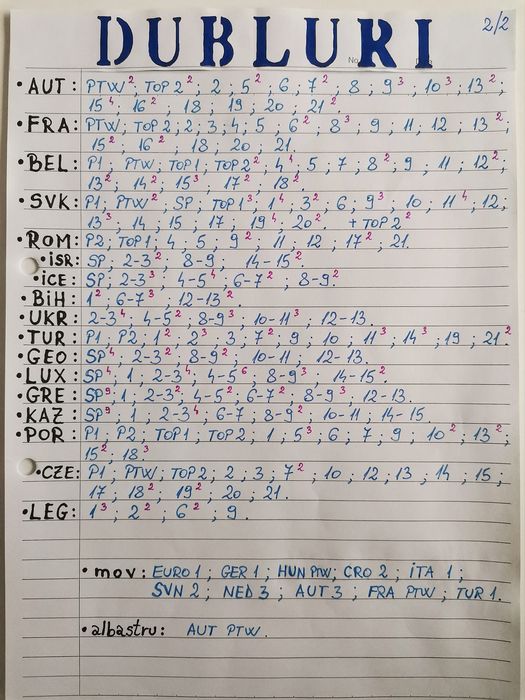 2/2
DUBLURI
• AUT: PTW², TOP 2²; 2; 5²; 6; 7²; 8; 9³; 10³; 13²;
15⁴; 16²; 18; 19; 20; 21².
• FRA: PTW; TOP 2; 2; 3; 4; 5; 6²; 8³; 9; 11; 12; 13²;
15²; 16²; 18; 20; 21.
• BEL: P1; PTW; TOP1; TOP2²; 4⁴; 5; 7; 8²; 9; 11; 12²;
13²; 14²; 15³; 17²; 18².
• SVK: P1; PTW²; SP; TOP1³; 1⁴; 3²; 6; 9³; 10; 11⁴; 12;
13³; 14; 15; 17; 19⁴; 20². + TOP 2²
• ROM: P2; TOP1; 4; 5; 9²; 11; 12; 17²; 21.
• iSR: SP; 2-3²; 8-9; 14-15²
• iCE: SP; 2-3³; 4-5⁴; 6-7²; 8-9².
• BiH: 1²; 6-7³; 12-13².
• UKR: 2-3⁴; 4-5²; 8-9³; 10-11³; 12-13.
• TUR: P1; P2; 1²; 2³; 3; 7²; 9; 10; 11³; 14³; 19; 21².
• GEO: SP⁴; 2-3²; 8-9²; 10-11; 12-13.
• LUX: SP⁴; 1; 2-3⁴; 4-5⁶; 8-9³; 14-15².
• GRE: SP⁹; 1; 2-3²; 4-5²; 6-7²; 8-9³; 12-13.
• KAZ: SP⁹; 1; 2-3⁴; 6-7; 8-9²; 10-11; 14-15.
• POR: P1; P2; TOP1; TOP2; 1; 5³; 6; 7; 9; 10²; 13²;
15²; 18³.
• CZE: P1; PTW; TOP 2; 2; 3; 7²; 10; 12; 13; 14; 15;
17; 18²; 19²; 20; 21.
• LEG: 1³; 2²; 6²; 9.
• mov: EURO 1; GER 1; HUN PTW; CRO 2; iTA 1;
SVN 2; NED 3; AUT 3; FRA PTW; TUR 1.
• albastru: AUT PTW.